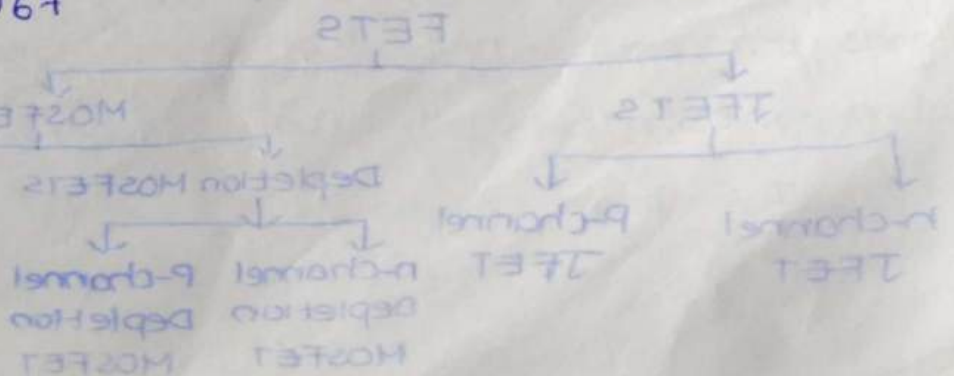 67
FETS
JFETS
MOSFE
n-channel
JFET
p-channel
JFET
Depletion MOSFETS
n-channel
Depletion
MOSFET
p-channel
Depletion
MOSFET